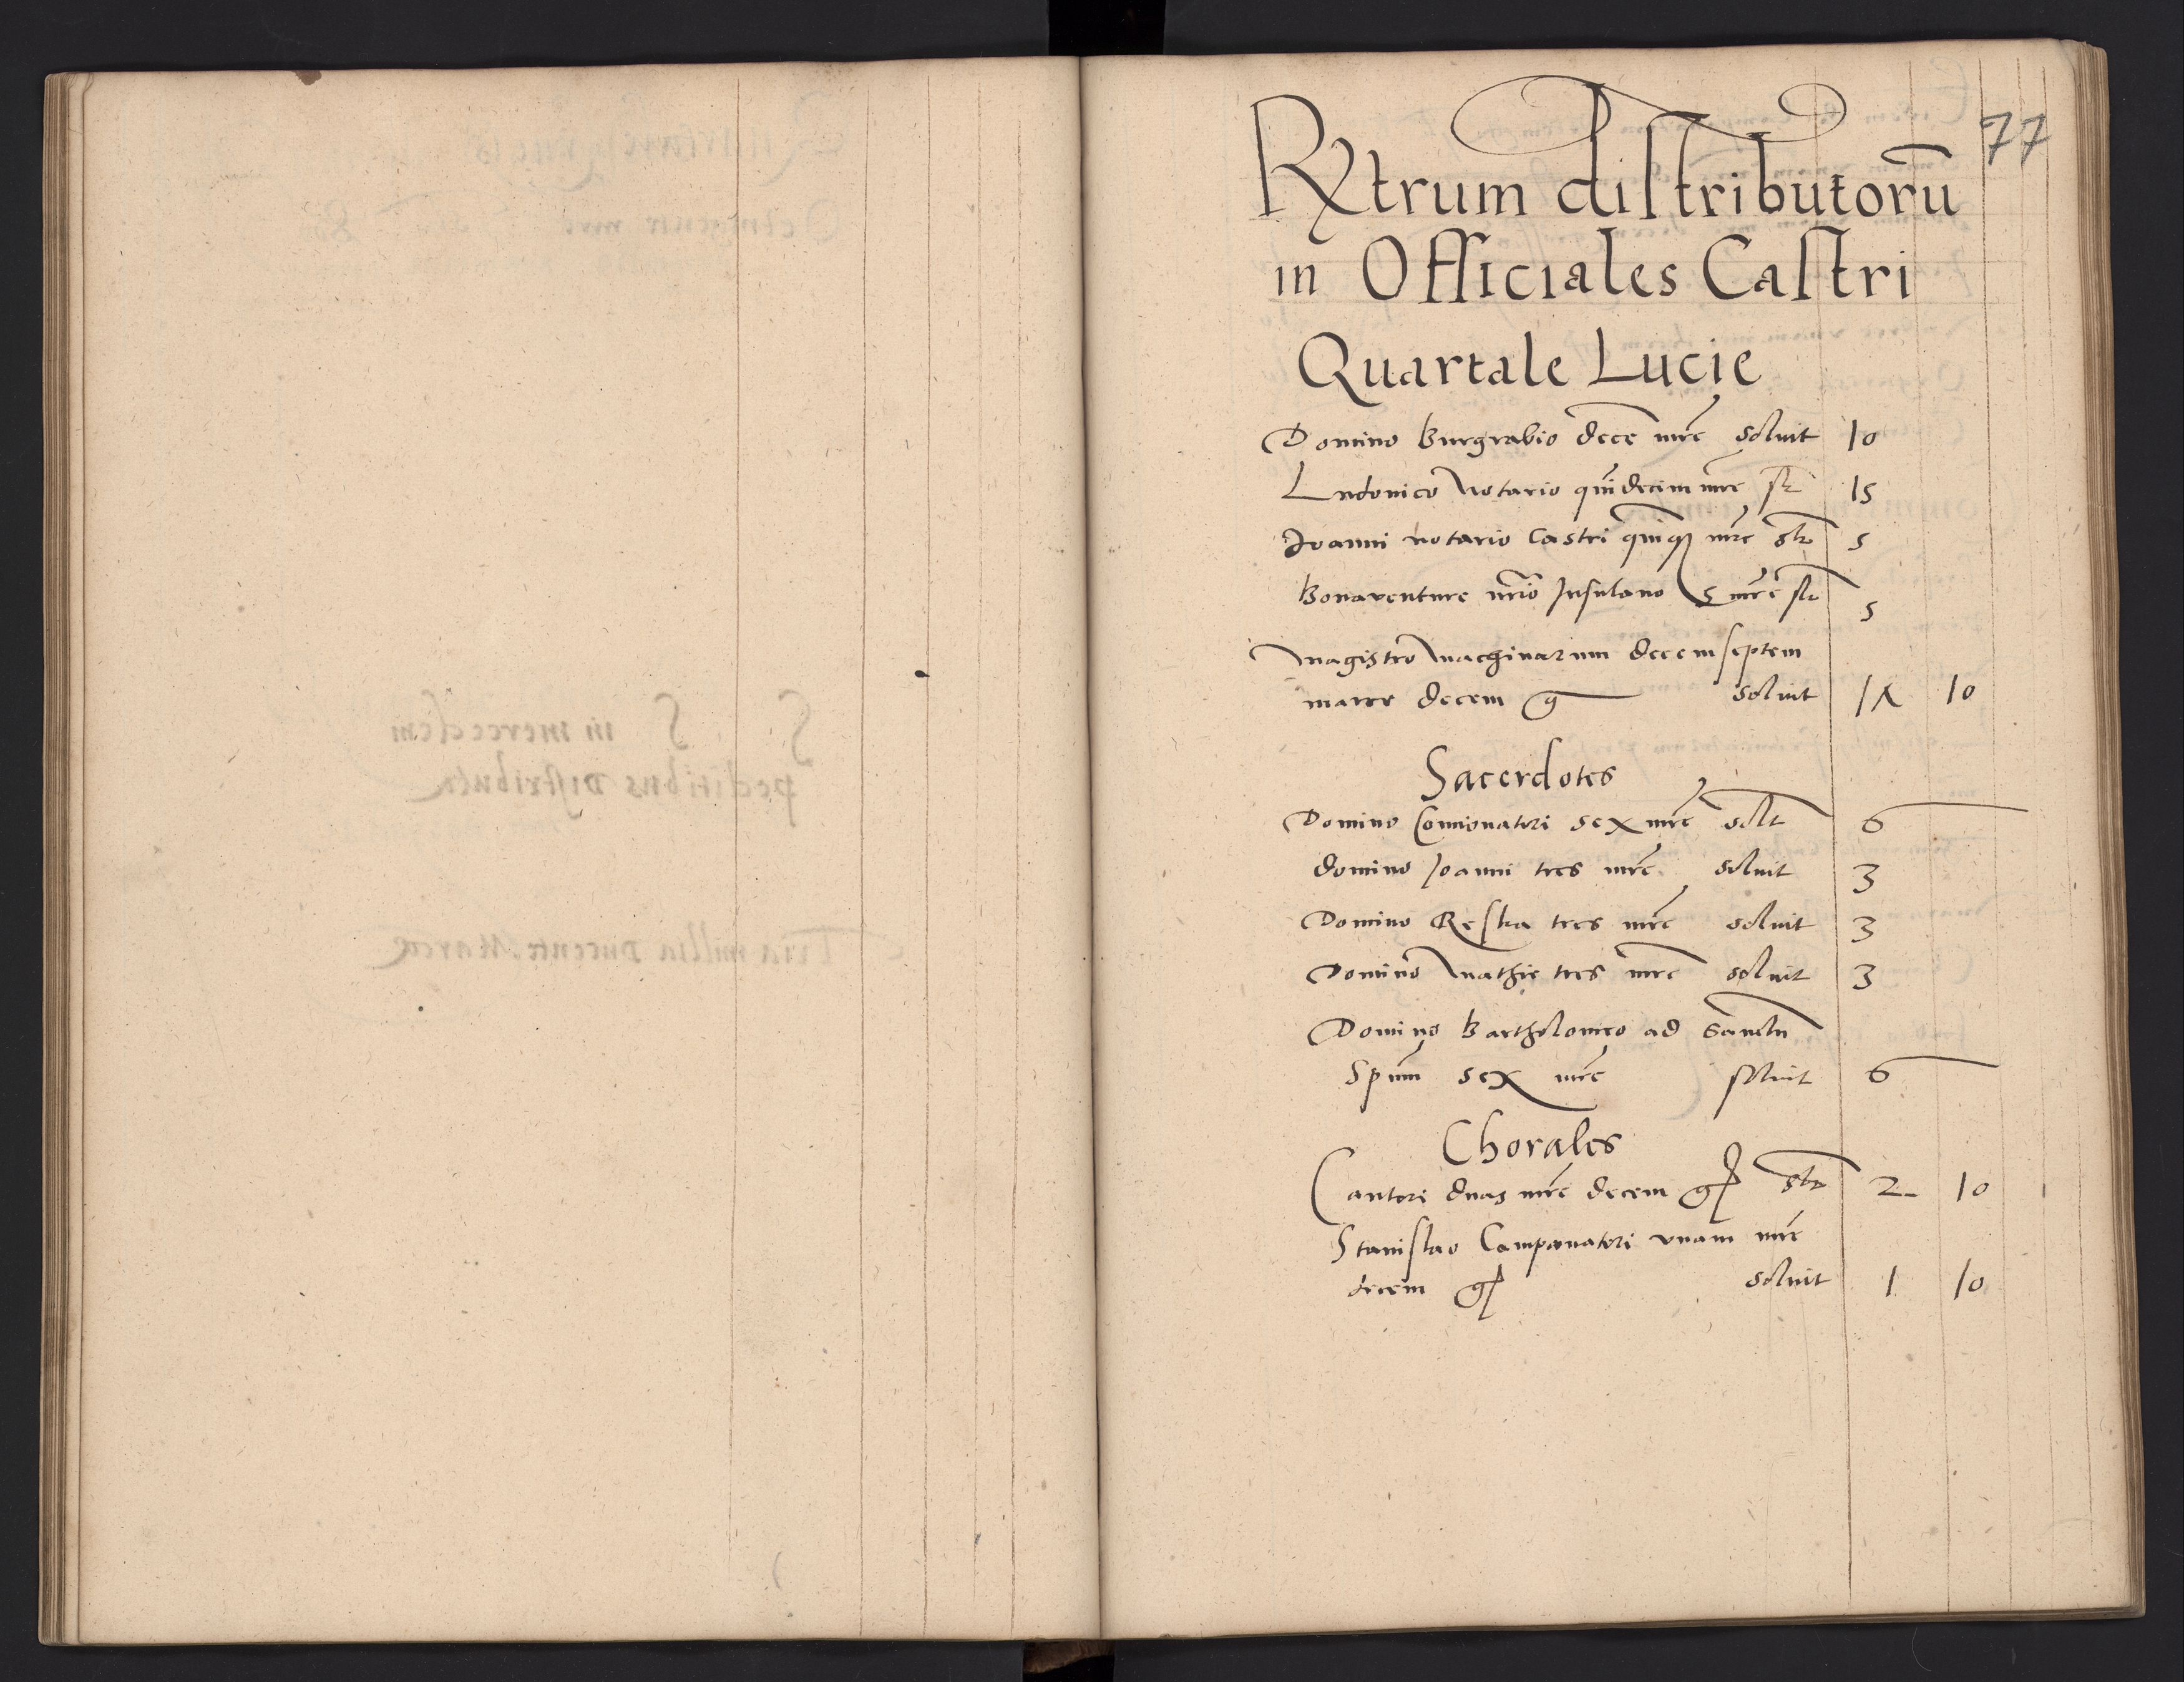 77
Rxtrum distributorũ
in Officiales Castri
Quartale Lucie
Domino Burgrabio decē mrc̄ soluit 10
Ludouico Notario quĩdecim mrc̄ slt 15
Joanni notario Castri quinq₃ mrc̄ slt 5
Bonauenture nrĩo Insulano 5 mrc̄ slt 5
Magistro Machinarum decem septem
marce decem g soluit 1Λ 10
Sacerdotes
Domino Concionatori sex mrc̄ solt 6
domino Joanni tres mrc̄ soluit 3
Domino Reska tres mrc̄ soluit 3
Domino Mathie tres mrc̄ soluit 3
Domino Bartholomeo ad Sanctũ
Spūm sex mrc̄ soluit 6
Chorales
Cantori duas mrc̄ decem g slt 2 10
Stanislao Campanatori vnam mrc̄
decem g soluit 1 10